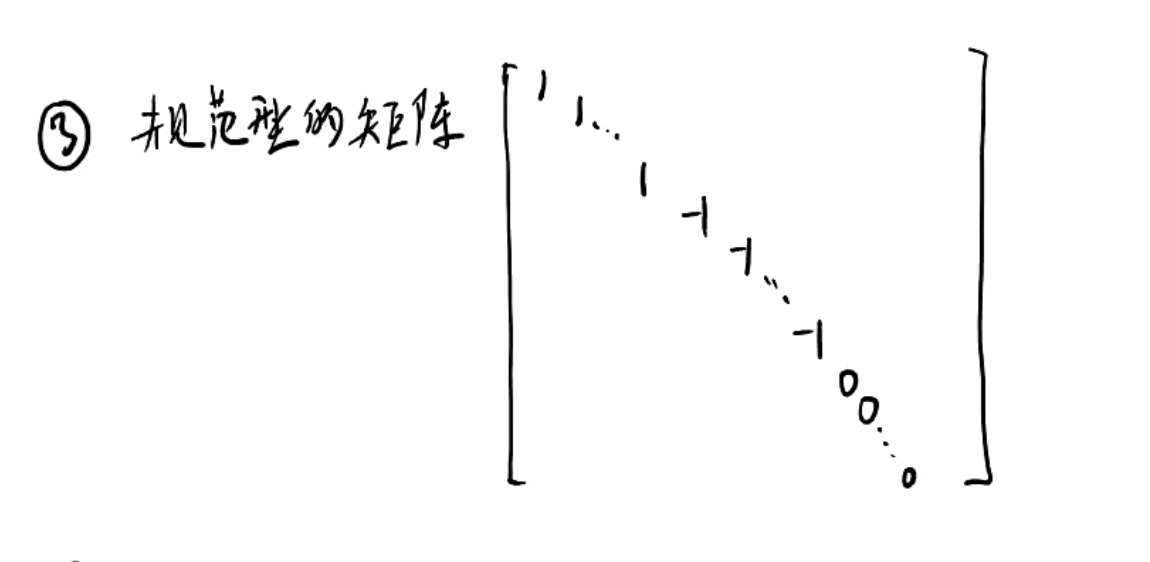 ③ 规范型的矩阵
1
1...
1
-1
-1...
-1
0
0...
0